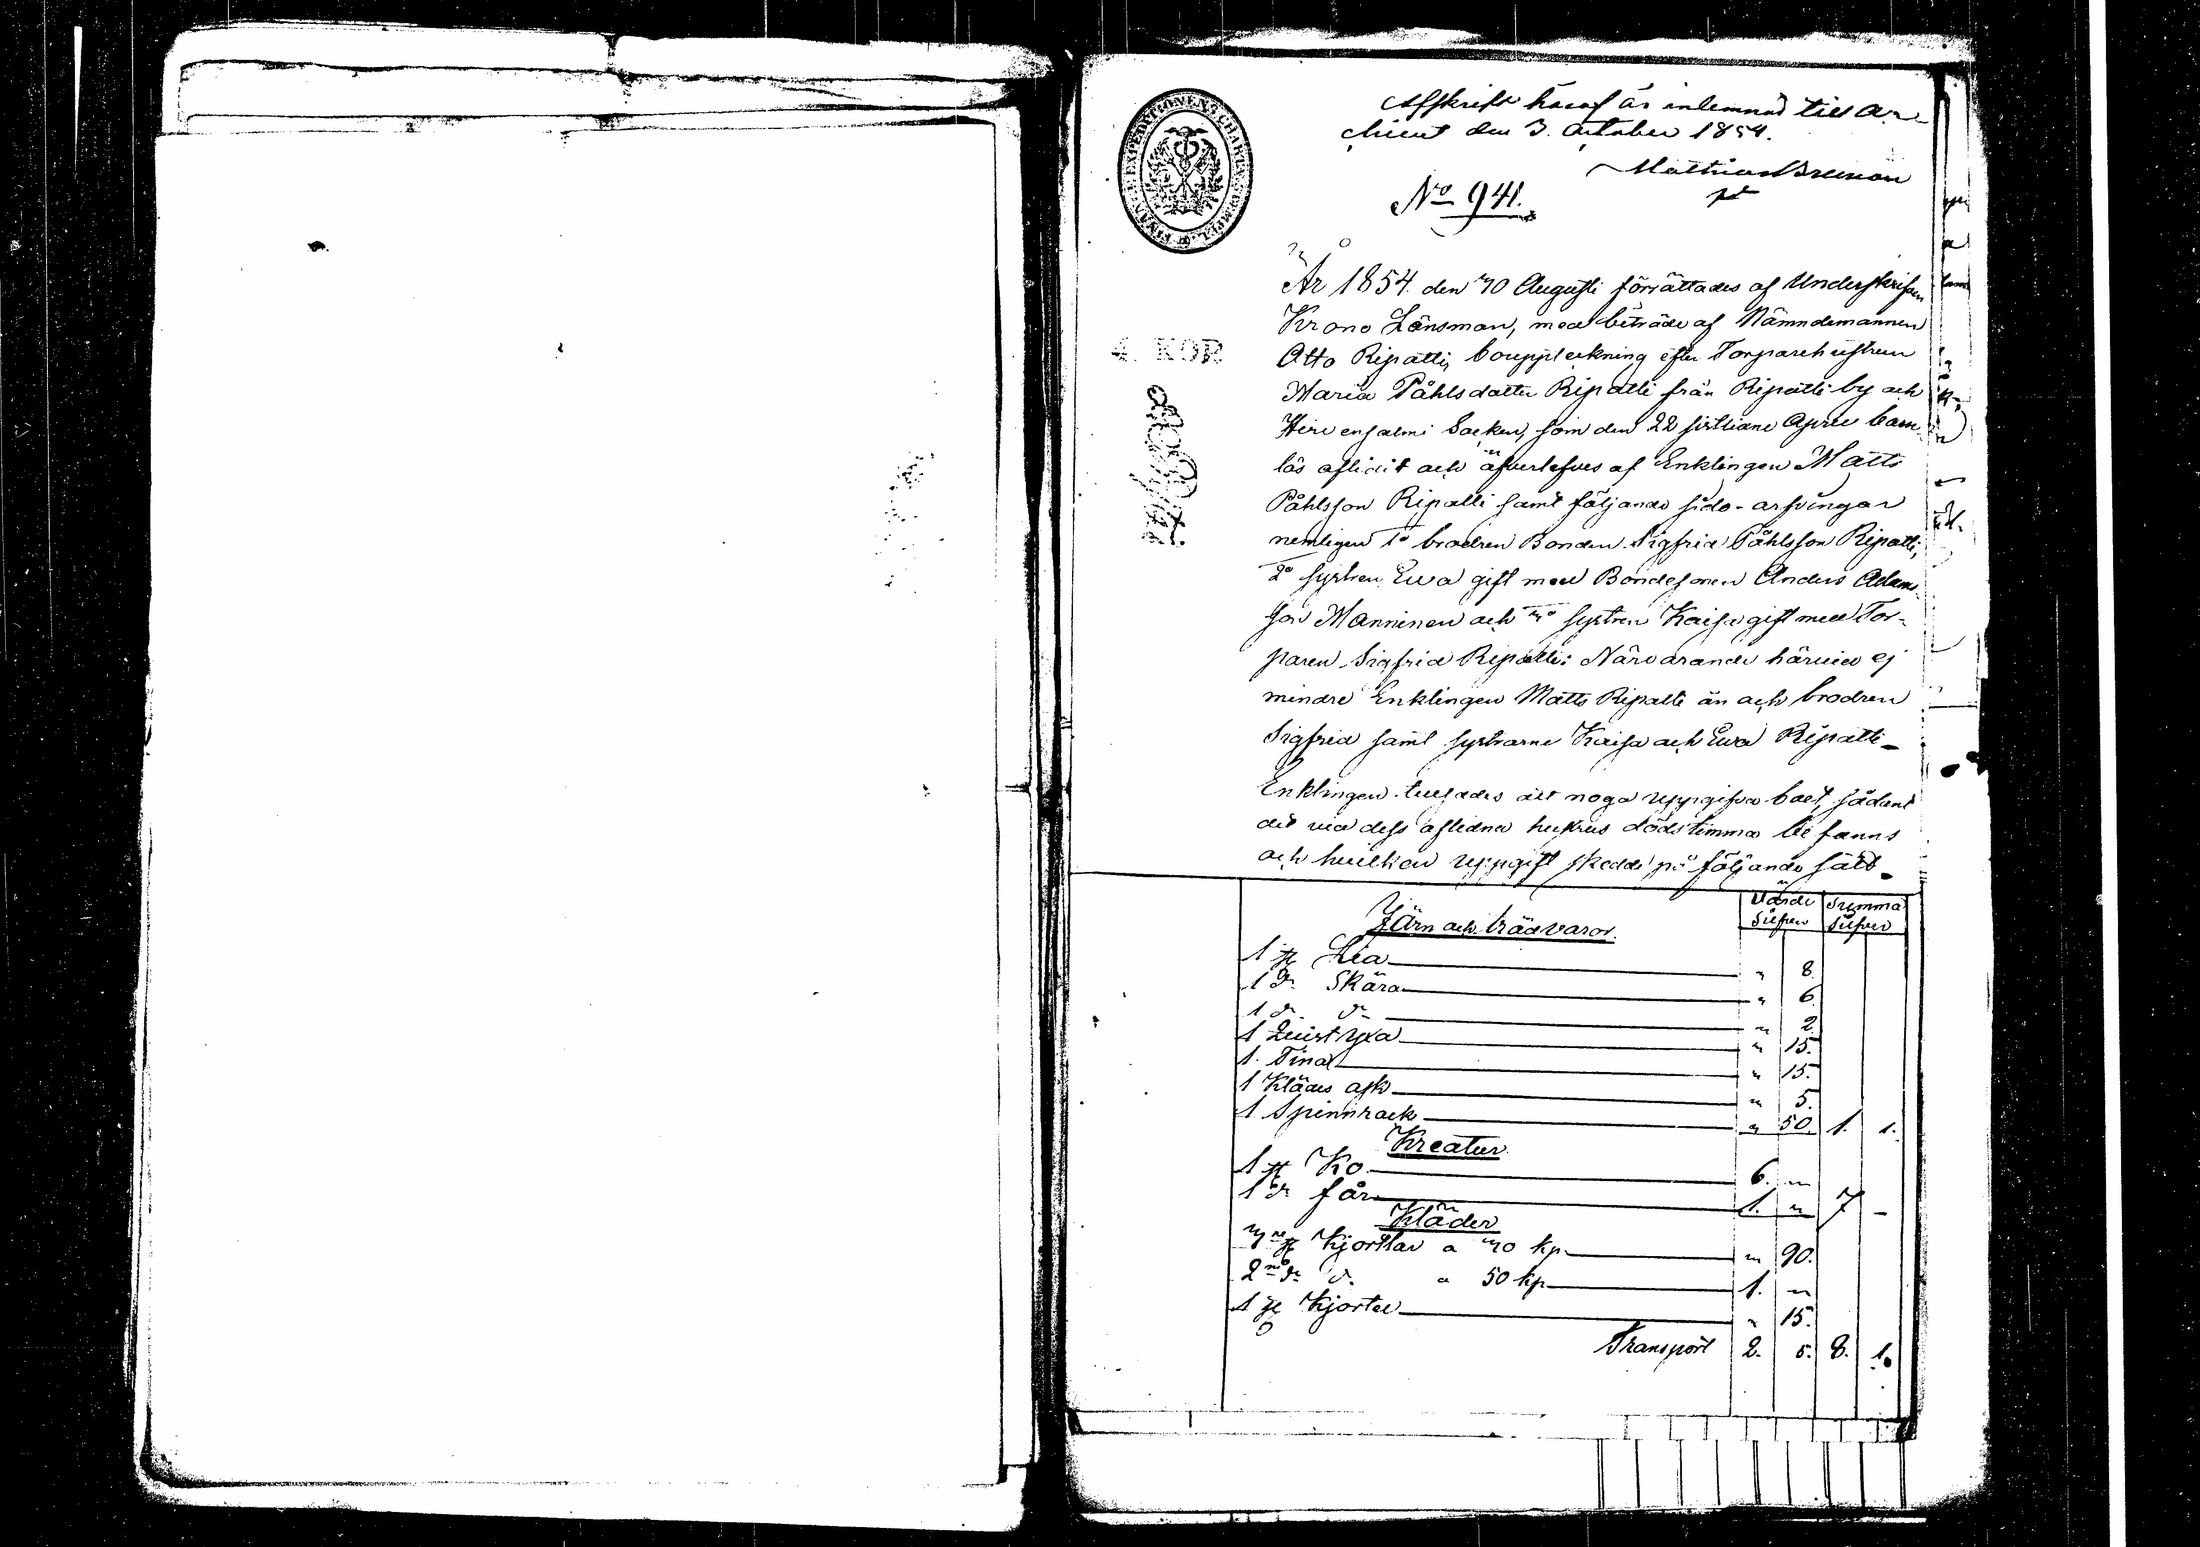 Afskrift häraf är inlemnad till Ar-
chivet den 3. October 1854.
No 941.
FINANCE EXPEDITIONENS CHARTÆ STEMPEL
4 KOP
År 1854 den 30 Augusti förrättades af Underskrifven
Krono Länsman, med biträde af Nämndemannen
Otto Ripatti, bouppteckning efter Torparehustrun
Maria Påhlsdotter Ripatti från Ripatti by och
Hirvensalmi Socken, som den 22 sistledne April barn-
lös aflidit och äfverlefves af Enklingen Matts
Påhlsson Ripatti samt följande sido-arfvingar
nemligen 1o brodren Bonden Sigfrid Påhlsson Ripatti,
2o systren Ewa gift med Bondesonen Anders Adams-
son Manninen och 3o systren Kaisa gift med Tor-
paren Sigfrid Ripatti: Närvarande härvid ej
mindre Enklingen Matts Ripatti än ock brodren
Sigfrid samt systrarne Kaisa och Ewa Ripatti-
Enklingen tillsades att noga uppgifva boet, sådant
det vid dess aflidna hustrus dödstimma befanns
och hvilken uppgift skedde på följande sätt-
Värde Silfver Summa Silfver
Järn och trädvaror.
1 st Lia " 8.
1 do Skära " 6.
1 do do " 2.
1 Qvistyxa " 15.
1. Tina " 15.
1 Klädes ask " 5.
1 Spinnrock " 50. 1. 1.
Kreatur.
1 st Ko 6. "
1 do får 1. " 7 -
Kläder
3ne st Kjortlar a 30 kp " 90.
2ne do do a 50 kp 1. "
1 st Kjortel " 15.
Transport 2. 5. 8. 1.